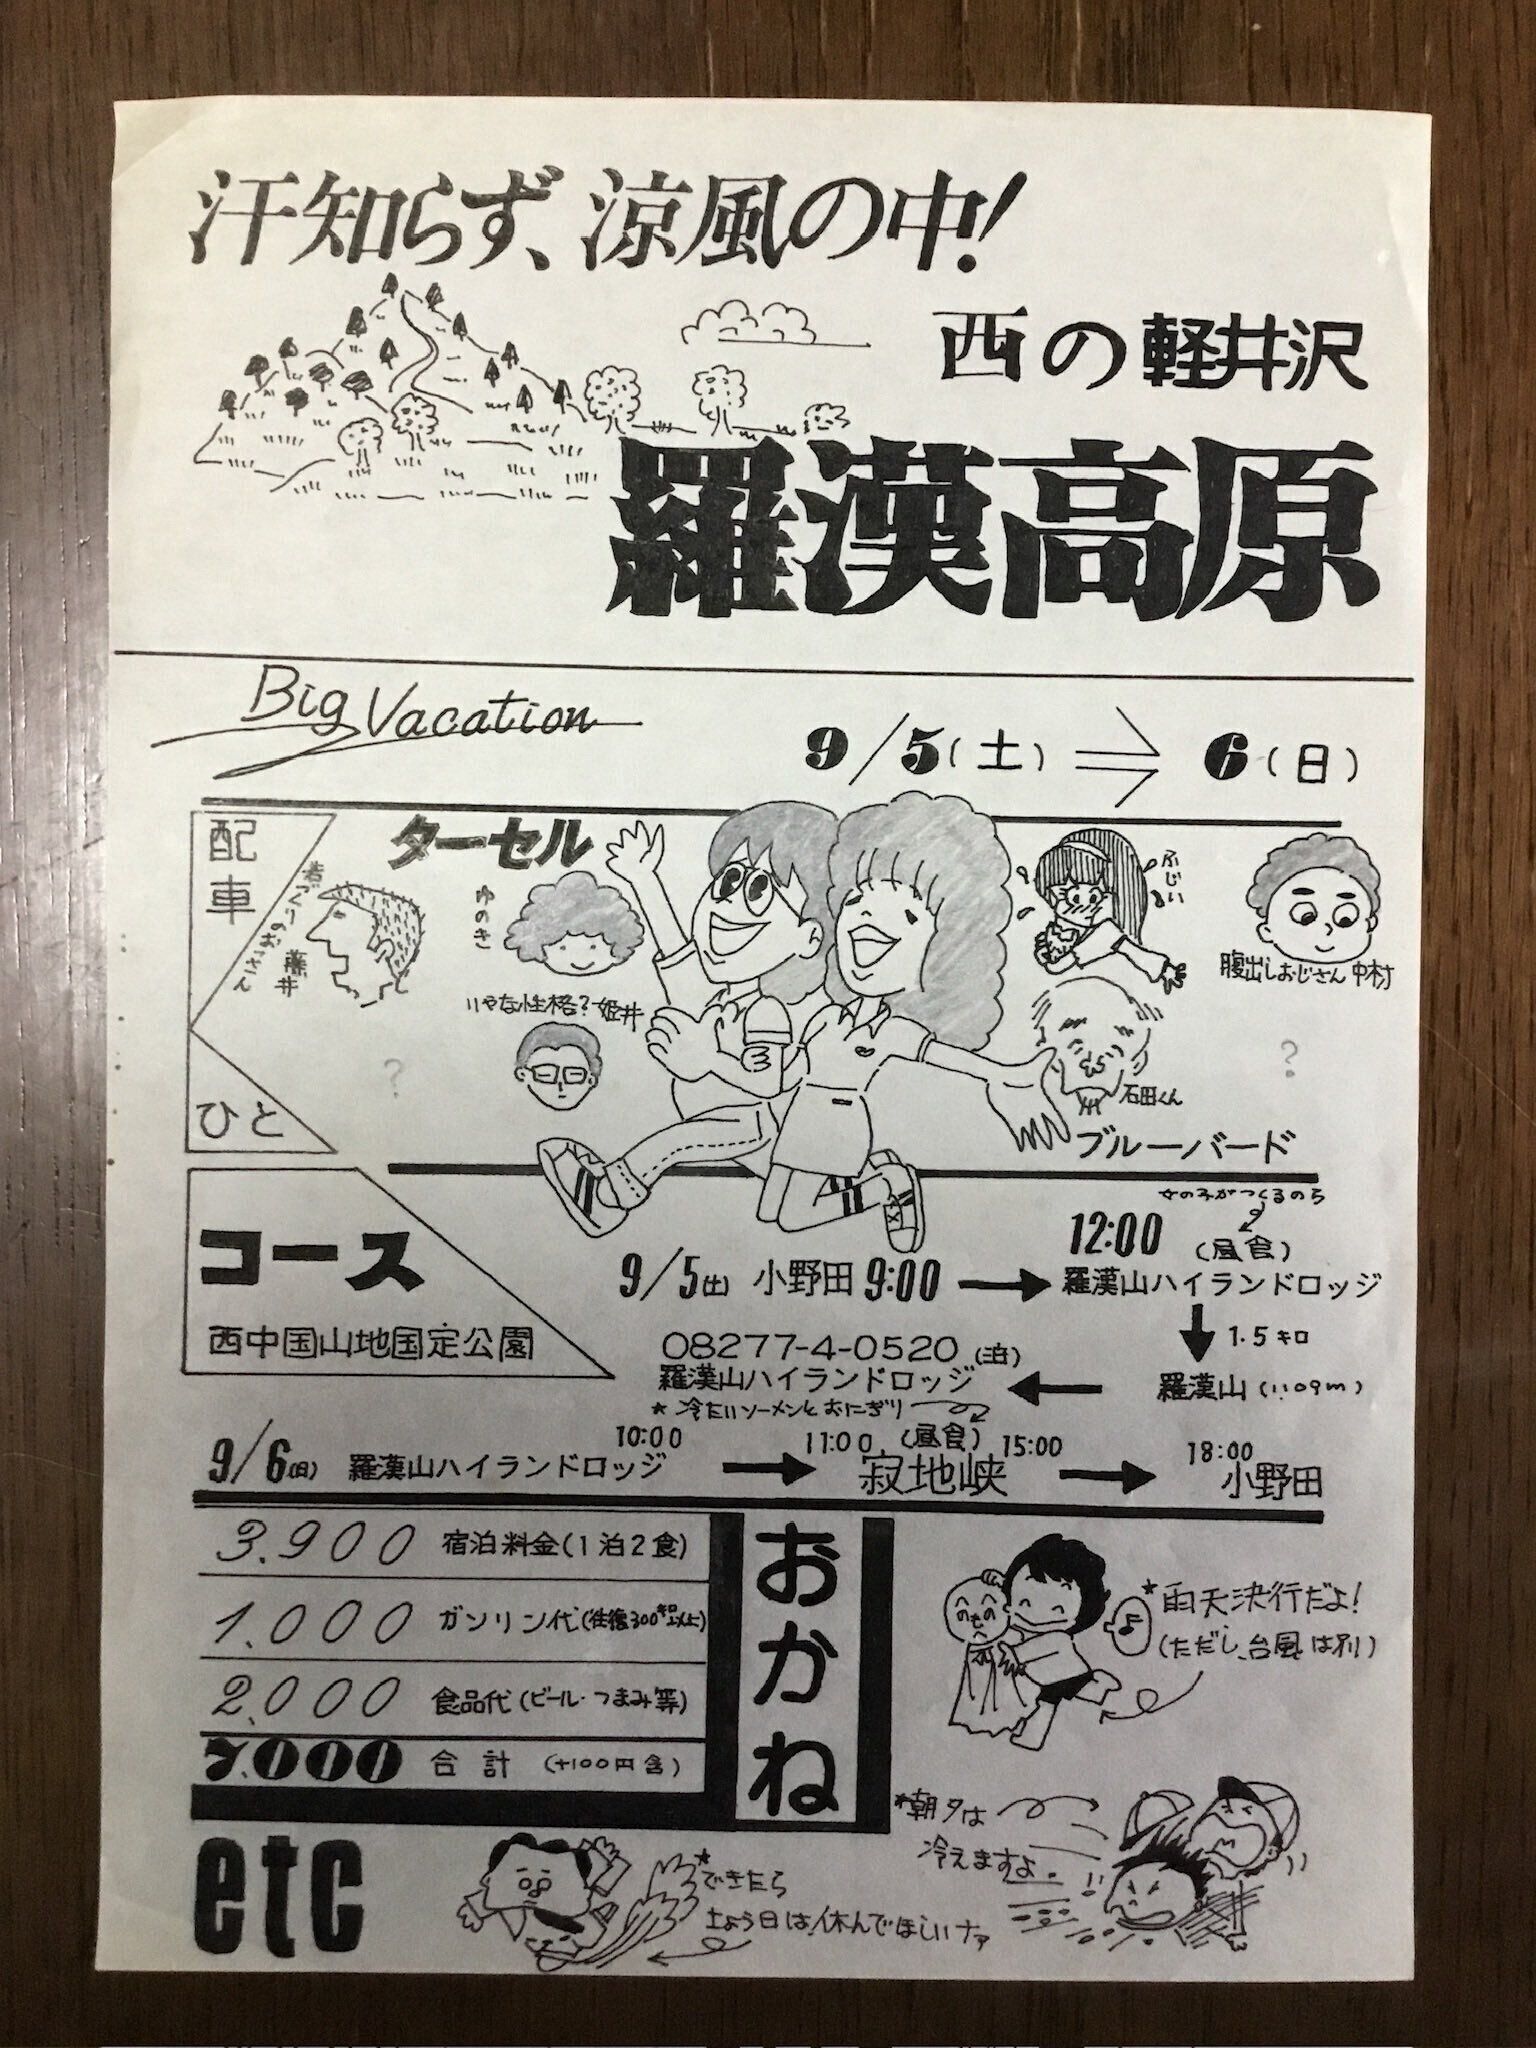 汗知らず、涼風の中!
西の軽井沢
羅漢高原
Big Vacation
9/5(土) ⇒ 6(日)
配車
ひと
ターセル
若づくりのおっさん
藤井
ゆのき
いやな性格?姫井
?
ふじい
腹出しおじさん 中村
石田くん
?
ブルーバード
コース
西中国山地国定公園
女の子がつくるのら
12:00 (昼食)
9/5(土) 小野田 9:00 → 羅漢山ハイランドロッジ
↓ 1.5キロ
08277-4-0520 (泊)
羅漢山ハイランドロッジ ← 羅漢山 (1109m)
★ 冷たいソーメンとおにぎり
10:00 11:00 (昼食) 15:00 18:00
9/6(日) 羅漢山ハイランドロッジ → 寂地峡 → 小野田
おかね
3.900 宿泊料金(1泊2食)
1.000 ガソリン代(往復300キロ以上)
2.000 食品代(ビール・つまみ等)
7.000 合計 (+100円含)
★雨天決行だよ!
(ただし、台風は別)
★朝夕は
冷えますよ。
etc
★できたら
土よう日は、休んでほしいナァ